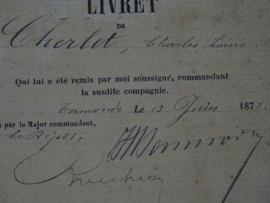 LIVRET
DE
Cherlet, Charles Louis
Qui lui a été remis par moi soussigné, commandant
la susdite compagnie.
Termonde le 13 Juin 187
par le Major commandant,
le Dépôt,